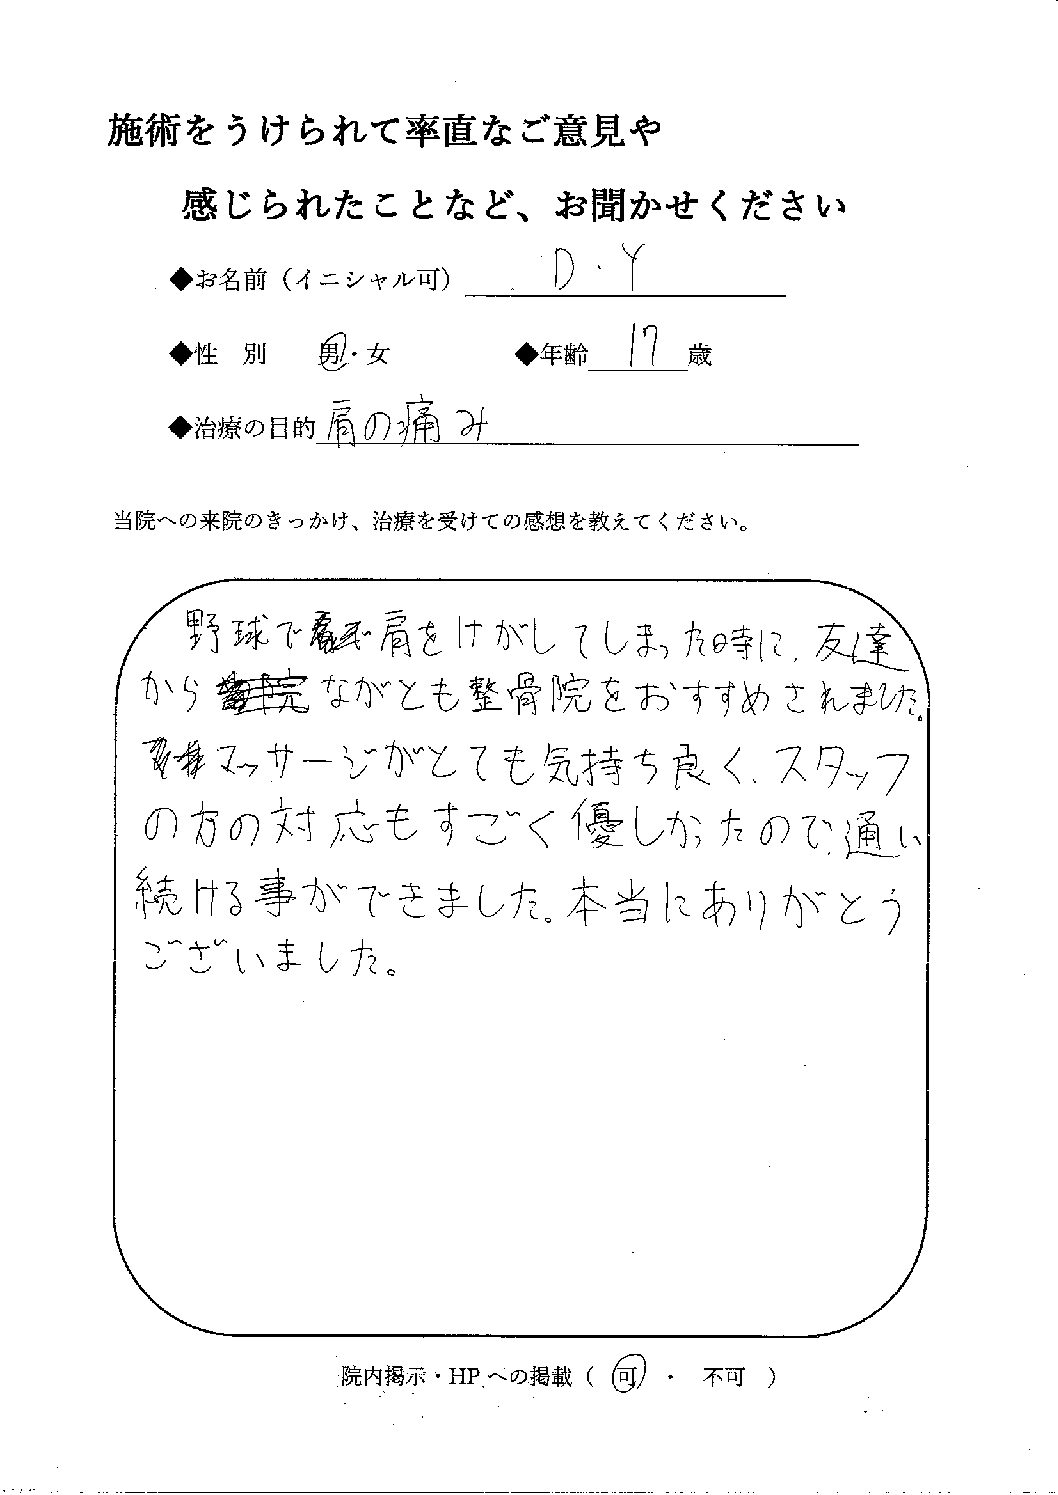 施術をうけられて率直なご意見や
感じられたことなど、お聞かせください
◆お名前（イニシャル可） D・Y
◆性 別 男・女 ◆年齢 17 歳
◆治療の目的 肩の痛み
当院への来院のきっかけ、治療を受けての感想を教えてください。
野球で肩をけがしてしまった時に、友達
から院ながとも整骨院をおすすめされました。
マッサージがとても気持ち良く、スタッフ
の方の対応もすごく優しかったので、通い
続ける事ができました。本当にありがとう
ございました。
院内掲示・HPへの掲載（ 可 ・ 不可 ）